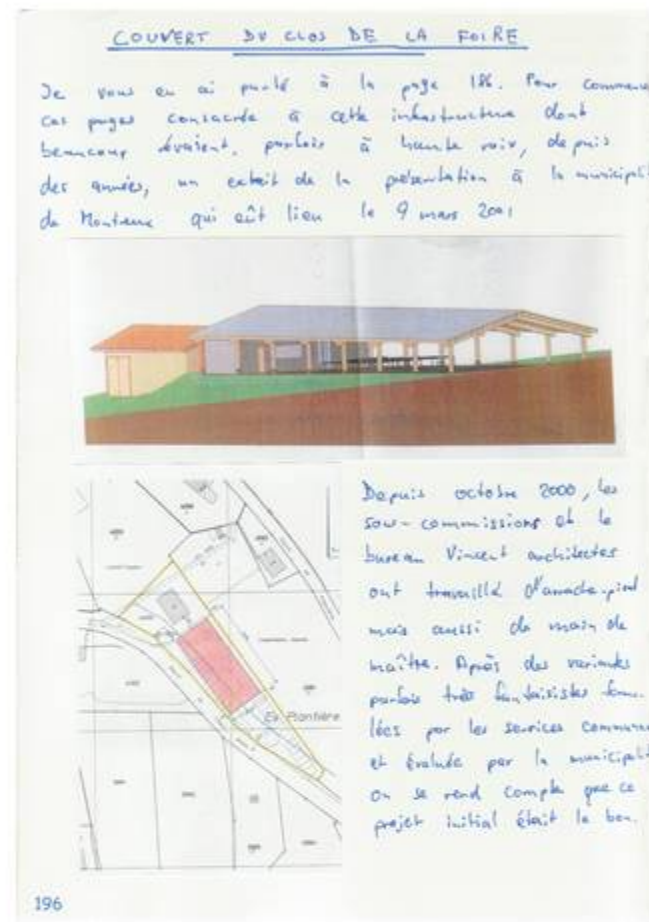 COUVERT DU CLOS DE LA FOIRE
Je vous en ai parlé à la page 186. Pour commence
ces pages consacrée à cette infrastructure dont
beaucoup rêvaient, parfois à haute voix, depuis
des années, un extrait de la présentation à la municipalit
de Montreux qui eût lieu le 9 mars 2001
Depuis octobre 2000, les
sous-commissions et le
bureau Vincent architectes
ont travaillé d'arrache-pied
mais aussi de main de
maître. Après des variantes
parfois très fantaisistes formu-
lées par les services communa
et évaluée par la municipalit
on se rend compte que ce
projet initial était le bon.
Es Plantière
196